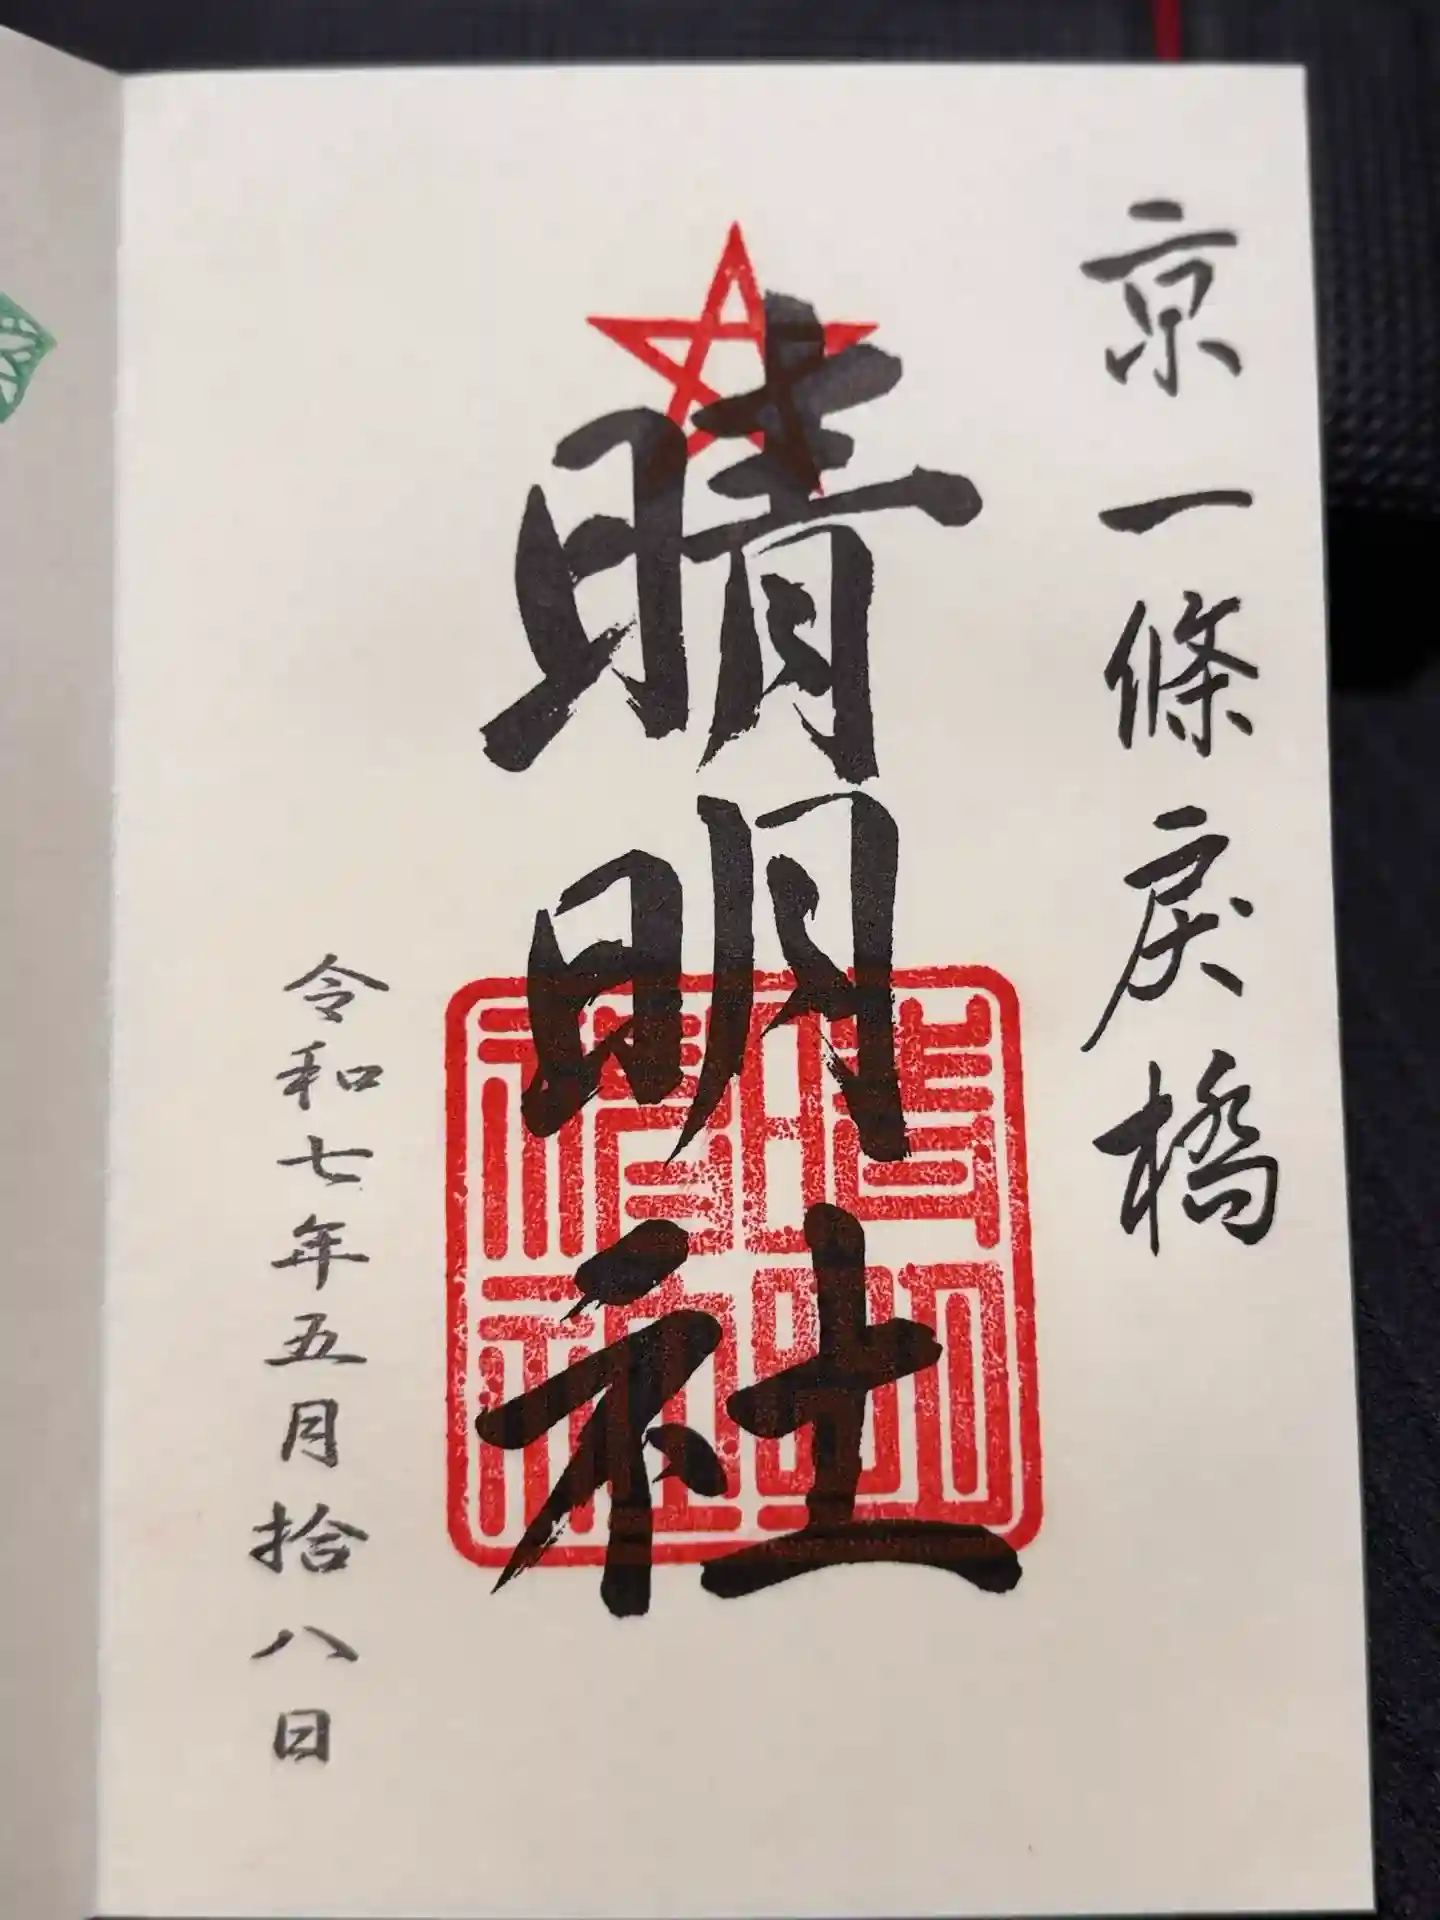 京一條戻橋
晴明社
晴明神社
令和七年五月拾八日